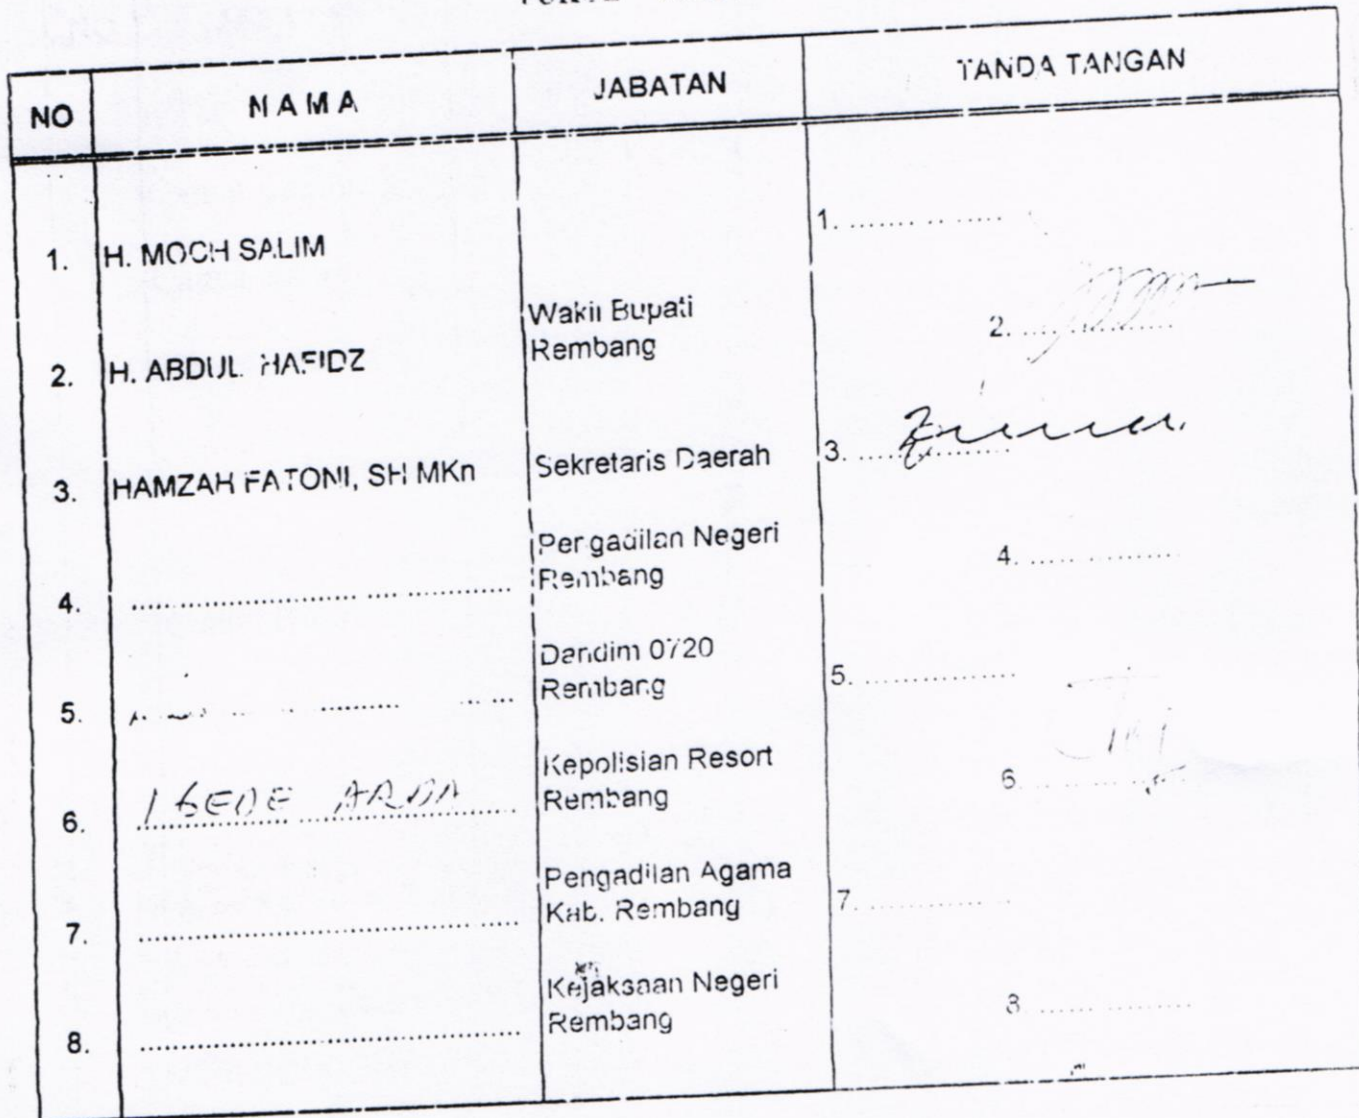 NO NAMA JABATAN TANDA TANGAN
1. H. MOCH SALIM 1. ....................
2. H. ABDUL HAFIDZ Wakil Bupati
Rembang 2. ....................
3. HAMZAH FATONI, SH MKn Sekretaris Daerah 3. ....................
4. .................... Pengadilan Negeri
Rembang 4. ....................
5. .................... Dandim 0720
Rembang 5. ....................
6. I GEDE ARDA Kepolisian Resort
Rembang 6. ....................
7. .................... Pengadilan Agama
Kab. Rembang 7. ....................
8. .................... Kejaksaan Negeri
Rembang 8. ....................